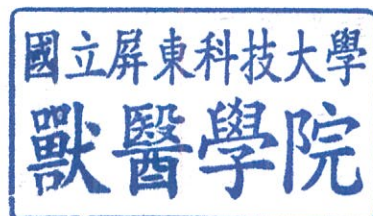 國立屏東科技大學
獸醫學院